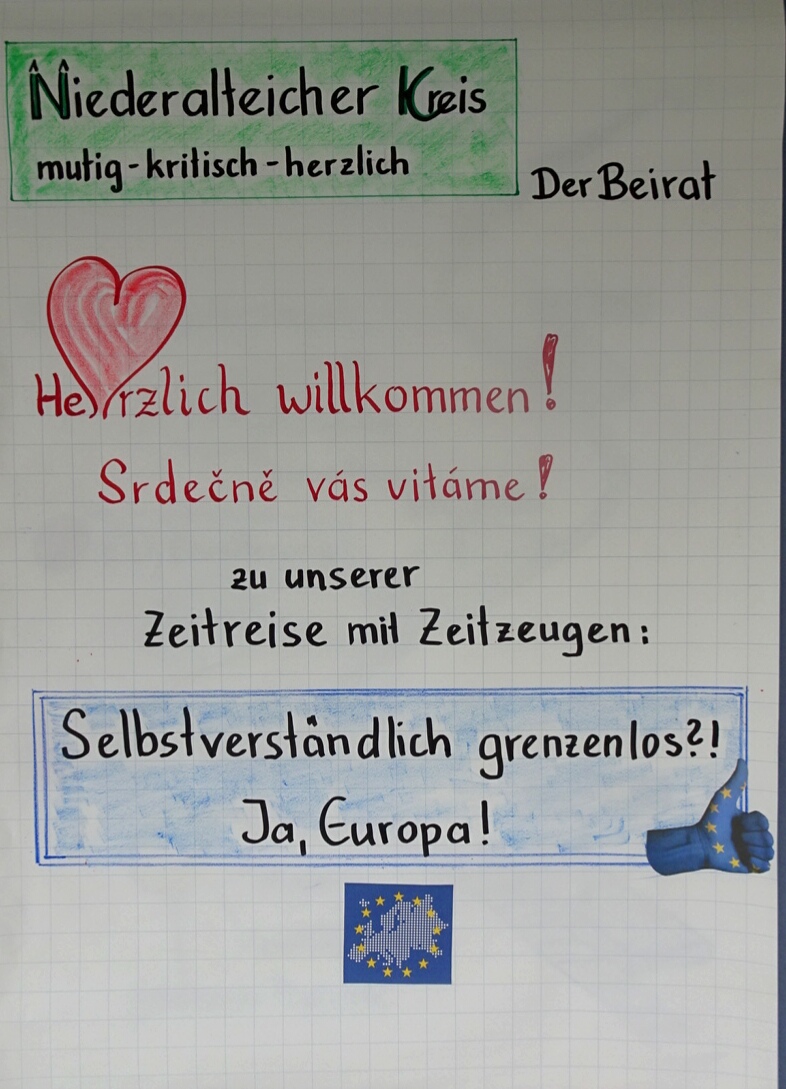 Niederalteicher Kreis
mutig-kritisch-herzlich
Der Beirat
Herzlich willkommen!
Srdečně vás vitáme!
zu unserer
Zeitreise mit Zeitzeugen:
Selbstverständlich grenzenlos?!
Ja, Europa!